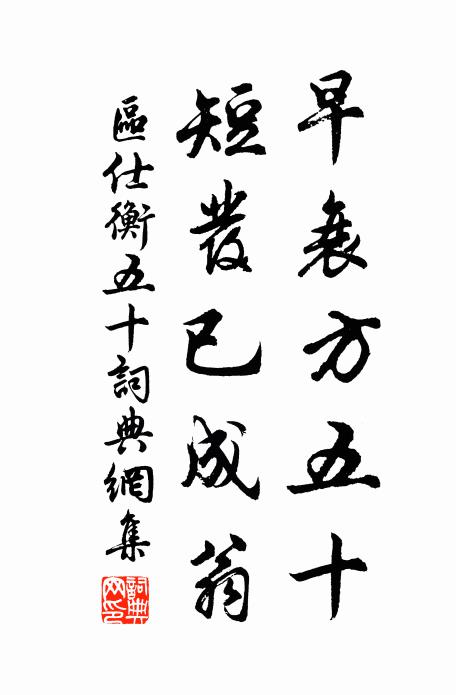 早衰方五十
短發已成翁
區仕衡五十詞典網集
詞典網印